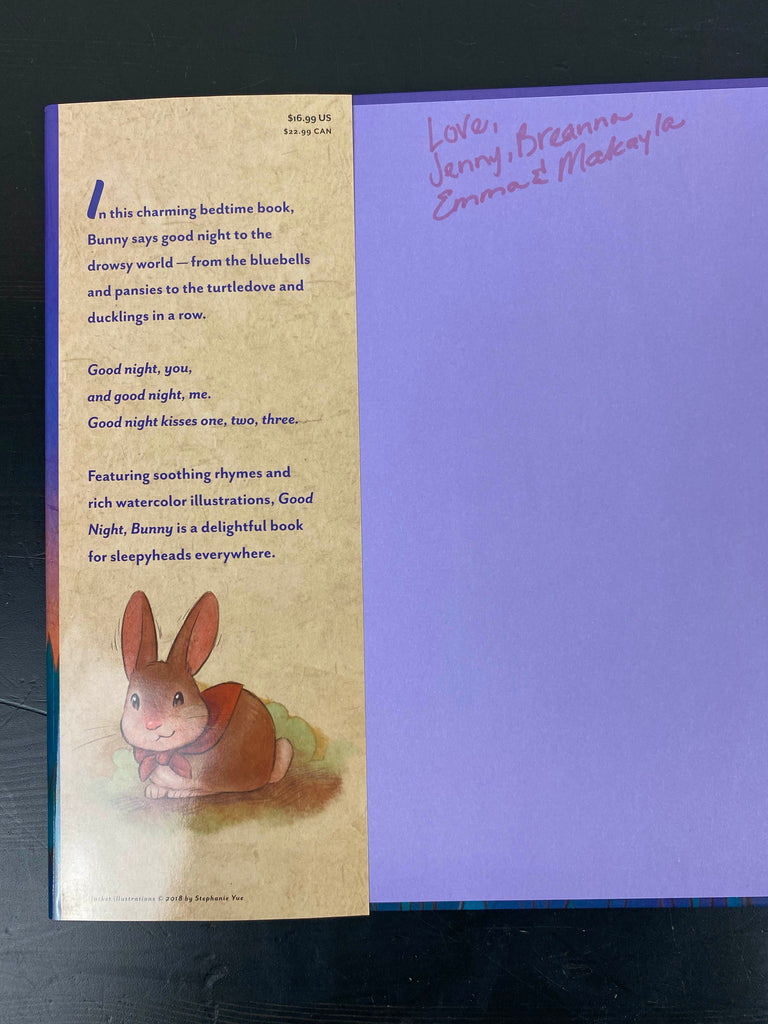 $16.99 US
$22.99 CAN
In this charming bedtime book,
Bunny says good night to the
drowsy world — from the bluebells
and pansies to the turtledove and
ducklings in a row.
Good night, you,
and good night, me.
Good night kisses one, two, three.
Featuring soothing rhymes and
rich watercolor illustrations, Good
Night, Bunny is a delightful book
for sleepyheads everywhere.
Jacket illustrations © 2018 by Stephanie Yue
Love,
Jenny, Breanna
Emma & Makayla